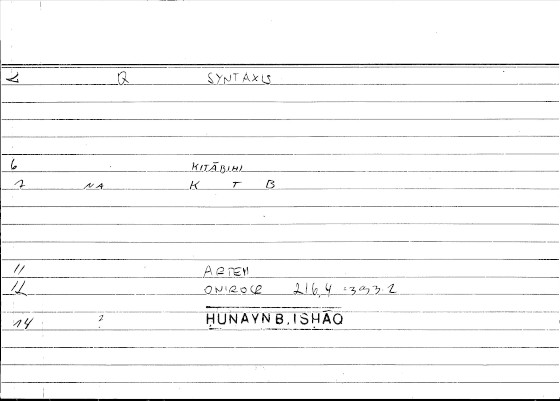 2 Q SYNTAXIS
6 KITĀBIHI
7 NA K T B
11 ARTEM
12 ONIROCR 216,4 :393.2
14 ? ḤUNAYN B. ISḤĀQ